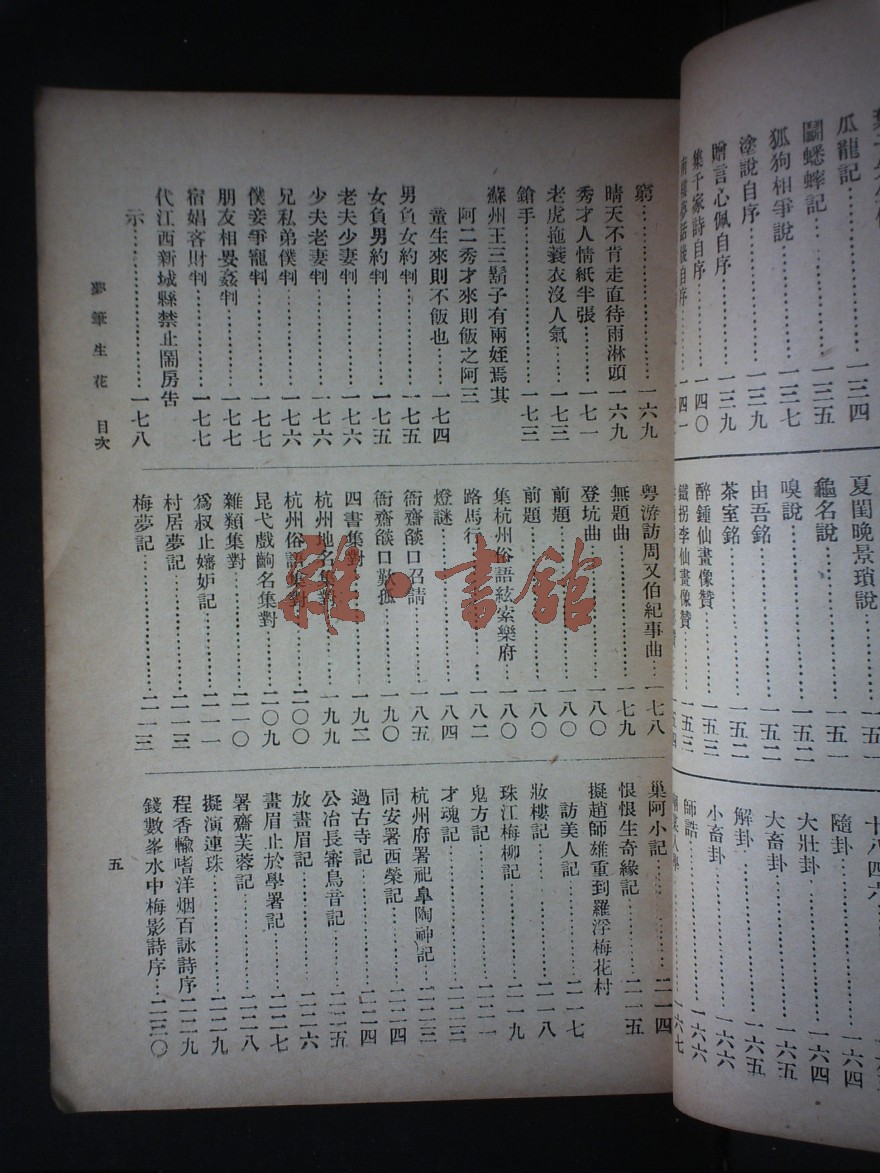 瓜龍記……一三四
鬭蟋蟀記……一三五
狐狗相爭說……一三七
塗說自序……一三九
贈言心佩自序……一三九
集千家詩自序……一四〇
夏閨晚景瑣說……一五一
龜名說……一五一
嗅說……一五二
由吾銘……一五二
茶室銘……一五二
醉鍾仙畫像贊……一五三
鐵拐李仙畫像贊……一五三
隨卦……一六四
大壯卦……一六四
大畜卦……一六五
解卦……一六五
小畜卦……一六六
師誥……一六六
窮……一六九
晴天不肯走直待雨淋頭……一六九
秀才人情紙半張……一七一
老虎拖蓑衣沒人氣……一七三
鎗手……一七三
蘇州王三鬍子有兩姪焉其
阿二秀才來則飯之阿三
童生來則不飯也……一七四
男負女約判……一七五
女負男約判……一七五
老夫少妻判……一七六
少夫老妻判……一七六
兄私弟僕判……一七六
僕妾爭寵判……一七七
朋友相嬲姦判……一七七
宿娼吝財判……一七七
代江西新城縣禁止鬧房告
示……一七八
粵游訪周又伯紀事曲……一七八
無題曲……一七九
登坑曲……一八〇
前題……一八〇
前題……一八〇
集杭州俗語絃索樂府……一八〇
路馬行……一八二
燈謎……一八四
衙齋燄口召請……一八五
衙齋燄口歎孤……一九〇
四書集對……一九二
杭州地名集對……一九九
杭州俗語集對……二〇〇
昆弋戲齣名集對……二〇九
雜類集對……二一〇
爲叔止嬸妒記……二一一
村居夢記……二一三
梅夢記……二一三
巢阿小記……二一四
恨恨生奇緣記……二一五
擬趙師雄重到羅浮梅花村
訪美人記……二一七
妝樓記……二一八
珠江梅柳記……二一九
鬼方記……二二一
才魂記……二二三
杭州府署祀臯陶神記……二二三
同安署西榮記……二二四
過古寺記……二二四
公冶長審鳥音記……二二五
放畫眉記……二二六
畫眉止於學署記……二二七
署齋芙蓉記……二二八
擬演連珠……二二九
程香輪嗜洋烟百詠詩序……二二九
錢數峯水中梅影詩序……二三〇
夢筆生花 目次
五
雜·書館